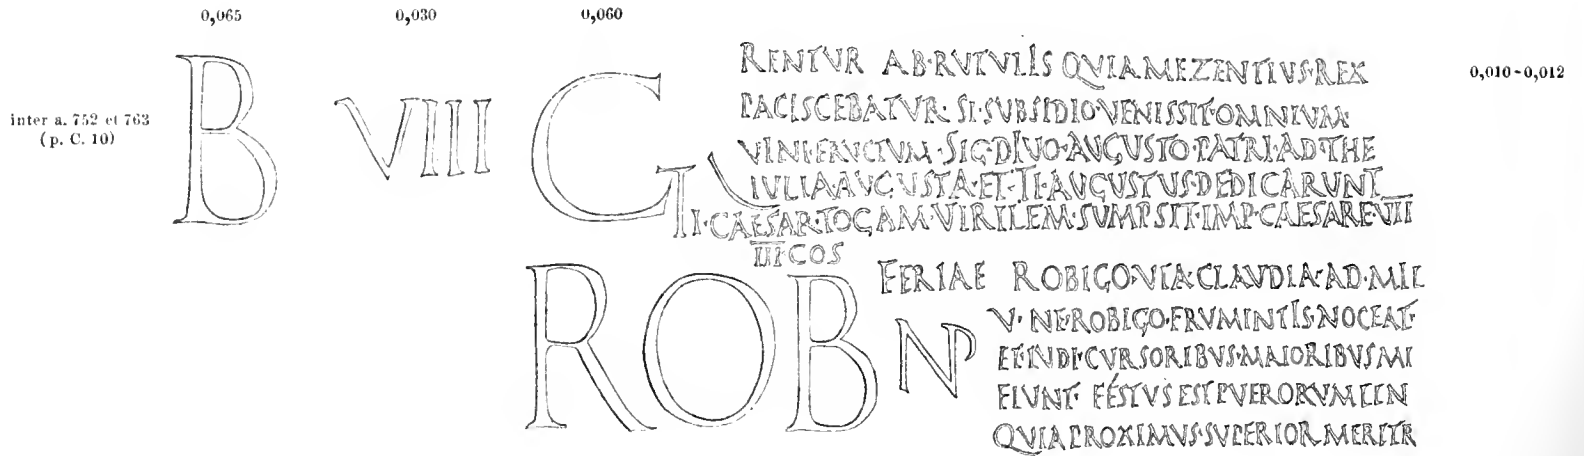 0,065 0,030 0,060
RENTVR AB·RVTVLIS QVIA·MEZENTIVS·REX 0,010-0,012
PACISCEBATVR· SI·SVBSIDIO·VENISSIT·OMNIVM·
inter a. 752 et 763
(p. C. 10)
B VIII C
VINI·FRVCTVM·SIG·DIVO·AVGVSTO·PATRI·AD·THE
IVLIA·AVGVSTA·ET·TI·AVGVSTVS·DEDICARVNT
TI·CAESAR·TOGAM·VIRILEM·SVMPSIT·IMP·CAESARE·VII
III·COS
ROB NP
FERIAE ROBIGO·VIA·CLAVDIA·AD·MIL
V· NE·ROBIGO·FRVMINTIS·NOCEAT·
ET·LVDI·CVRSORIBVS·MAIORIBVS MI
FIVNT· FÉSTVS EST PVERORVM LEN
QVIA PROXIMVS·SVPERIOR MERITR